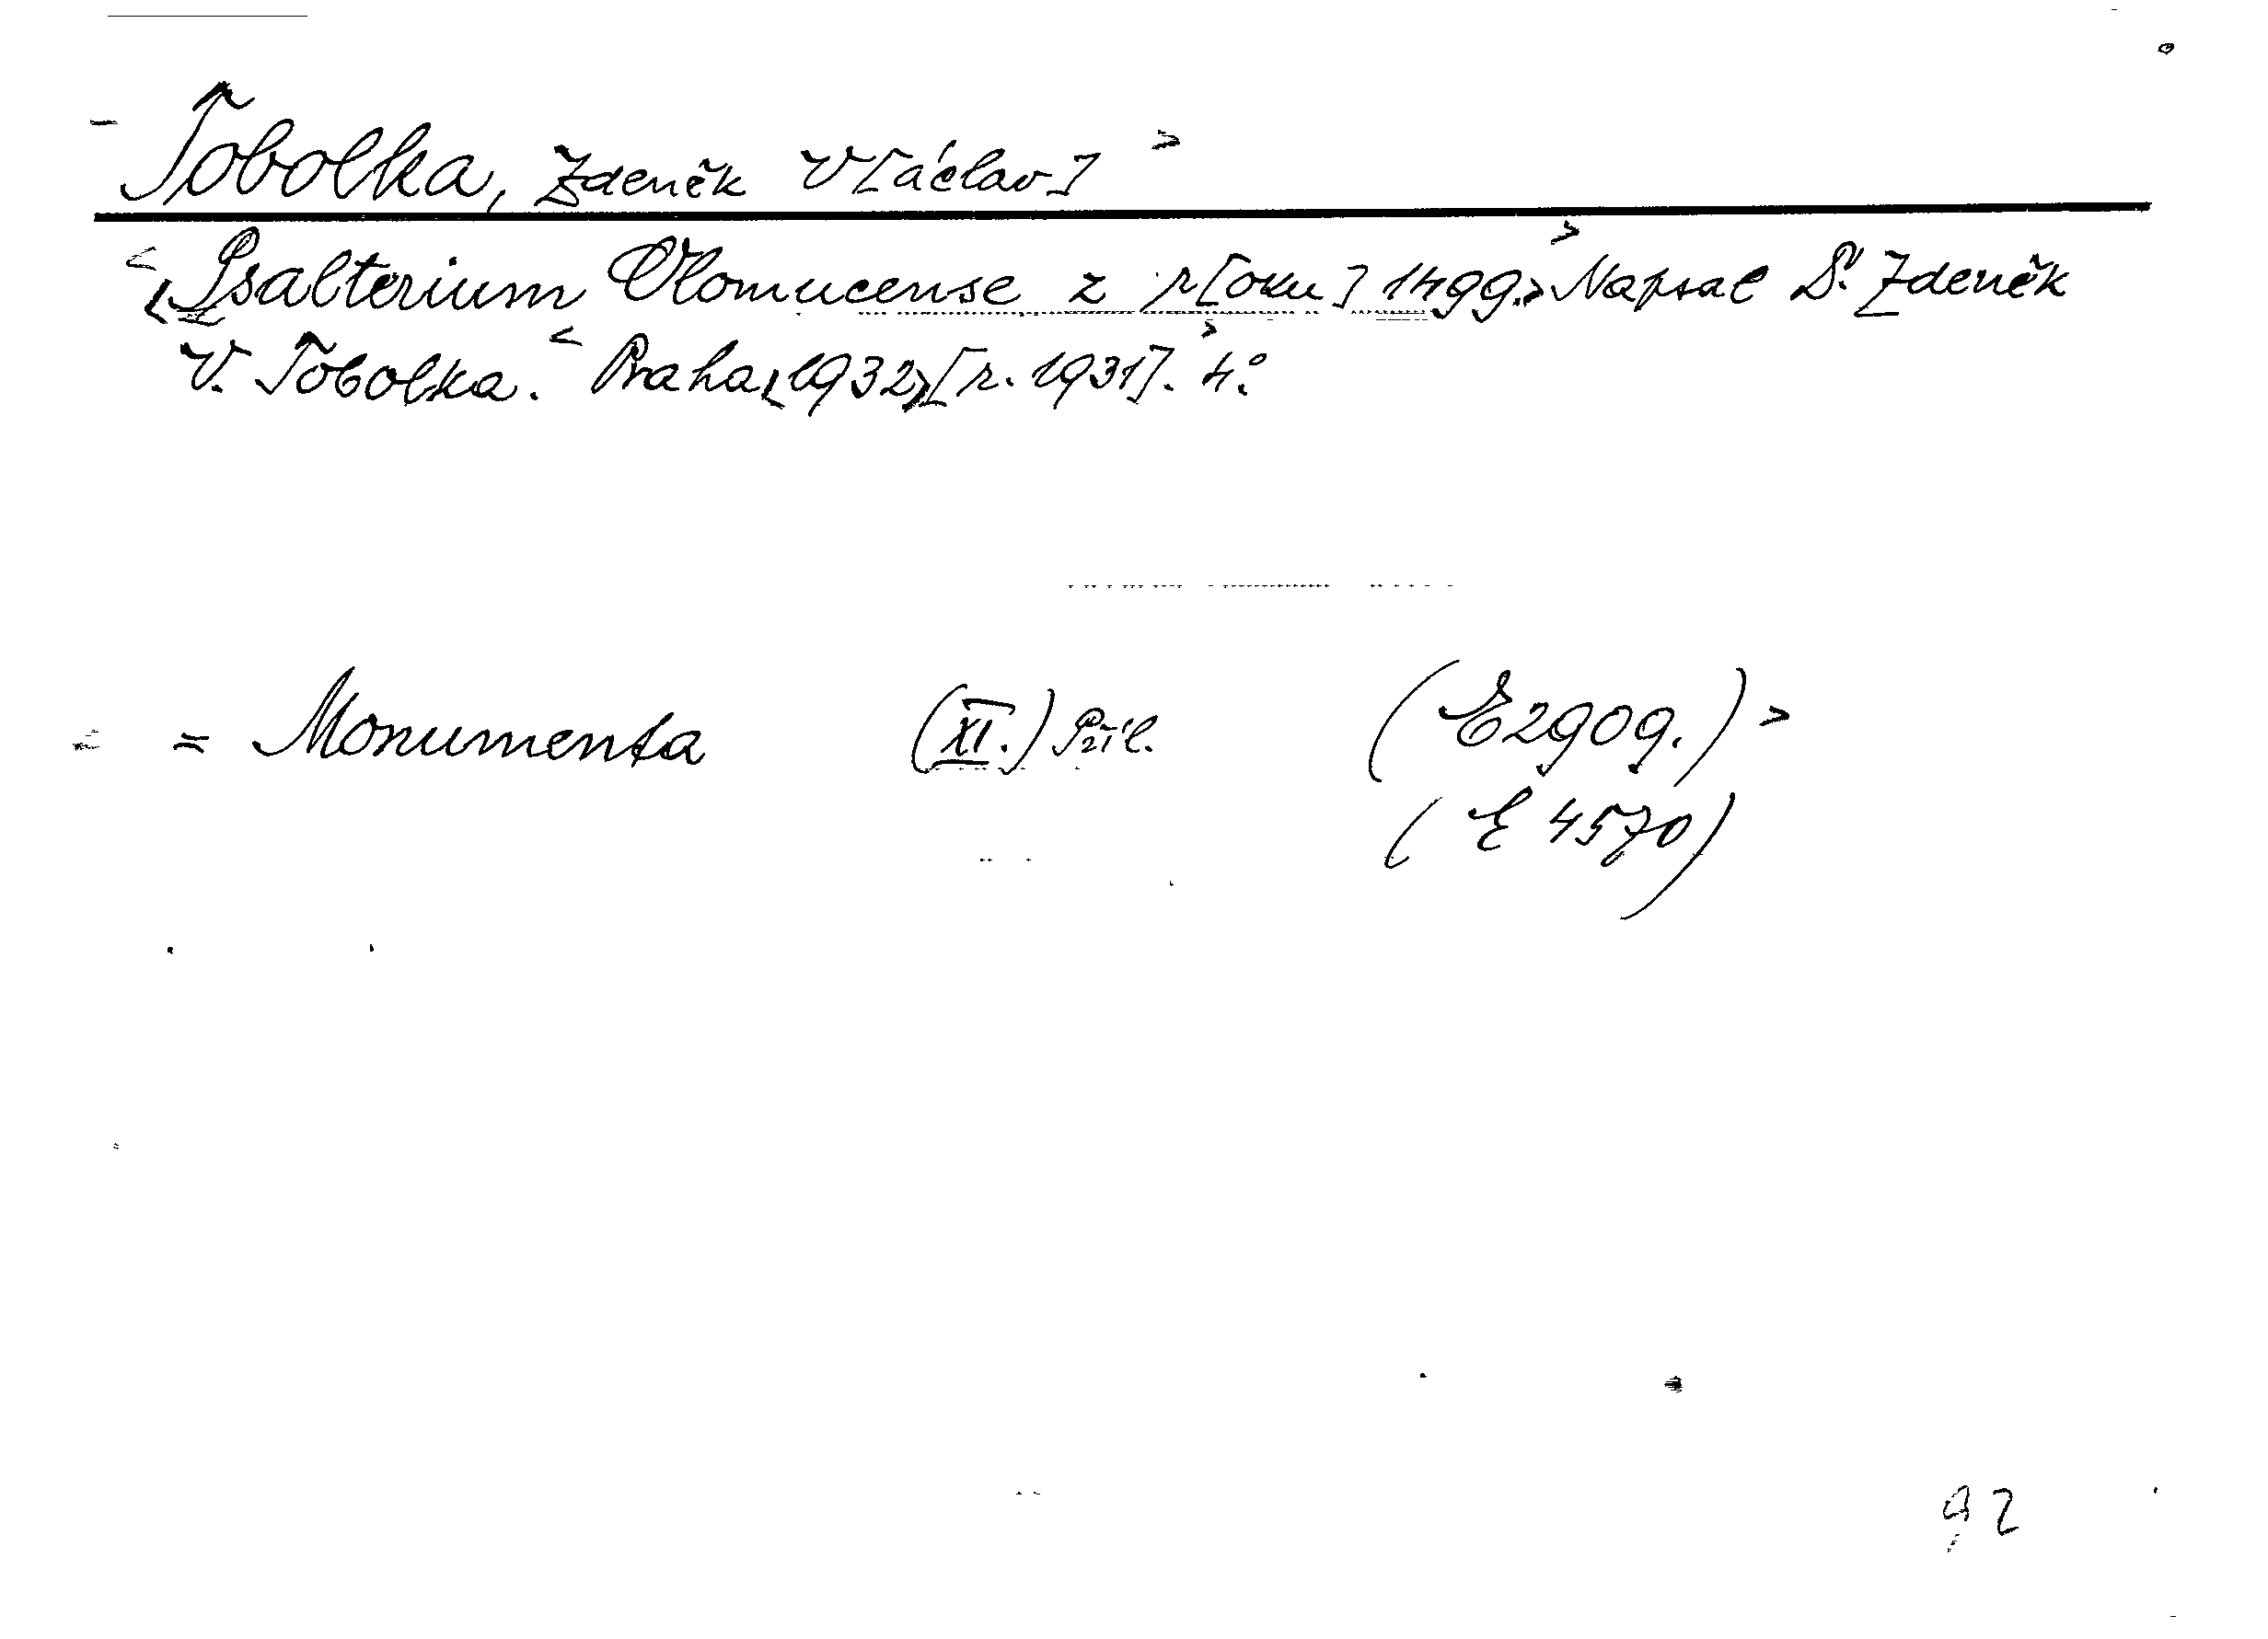 Tobolka, Zdeněk V[áclav] >
< <Psalterium Olomucense z r[oku] 1499.> > Napsal Dr Zdeněk
V. Tobolka. < Praha <1932> [r. 1931]. > 4.°
= Monumenta (XI.) Příl. (E2909.) >
(E 4570)
92